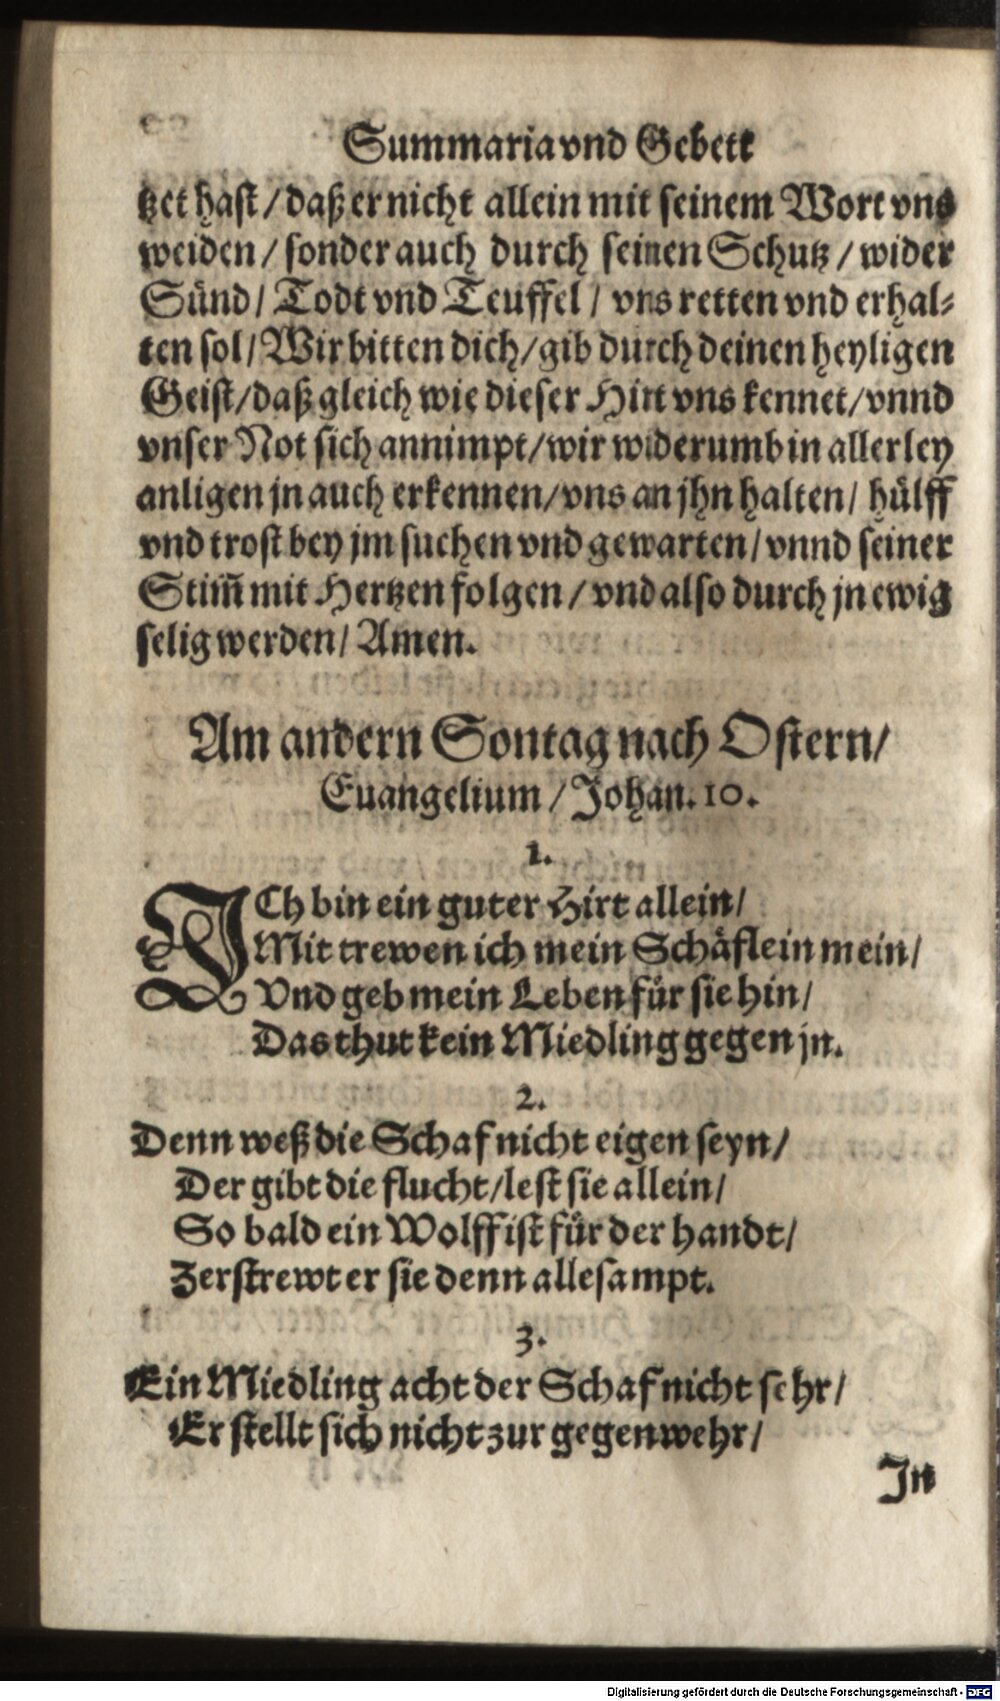 Summaria vnd Gebett
tzet hast / daß er nicht allein mit seinem Wort vns
weiden / sonder auch durch seinen Schutz / wider
Sünd / Todt vnd Teuffel / vns retten vnd erhal-
ten sol / Wir bitten dich / gib durch deinen heyligen
Geist / daß gleich wie dieser Hirt vns kennet / vnnd
vnser Not sich annimpt / wir widerumb in allerley
anligen jn auch erkennen / vns an jhn halten / hülff
vnd trost bey jm suchen vnd gewarten / vnnd seiner
Stim̃ mit Hertzen folgen / vnd also durch jn ewig
selig werden / Amen.
Am andern Sontag nach Ostern /
Euangelium / Johan. 10.
1.
ICh bin ein guter Hirt allein /
Mit trewen ich mein Schäflein mein /
Vnd geb mein Leben für sie hin /
Das thut kein Miedling gegen jn.
2.
Denn weß die Schaf nicht eigen seyn /
Der gibt die flucht / lest sie allein /
So bald ein Wolff ist für der handt /
Zerstrewt er sie denn allesampt.
3.
Ein Miedling acht der Schaf nicht sehr /
Er stellt sich nicht zur gegenwehr /
In
Digitalisierung gefördert durch die Deutsche Forschungsgemeinschaft - DFG